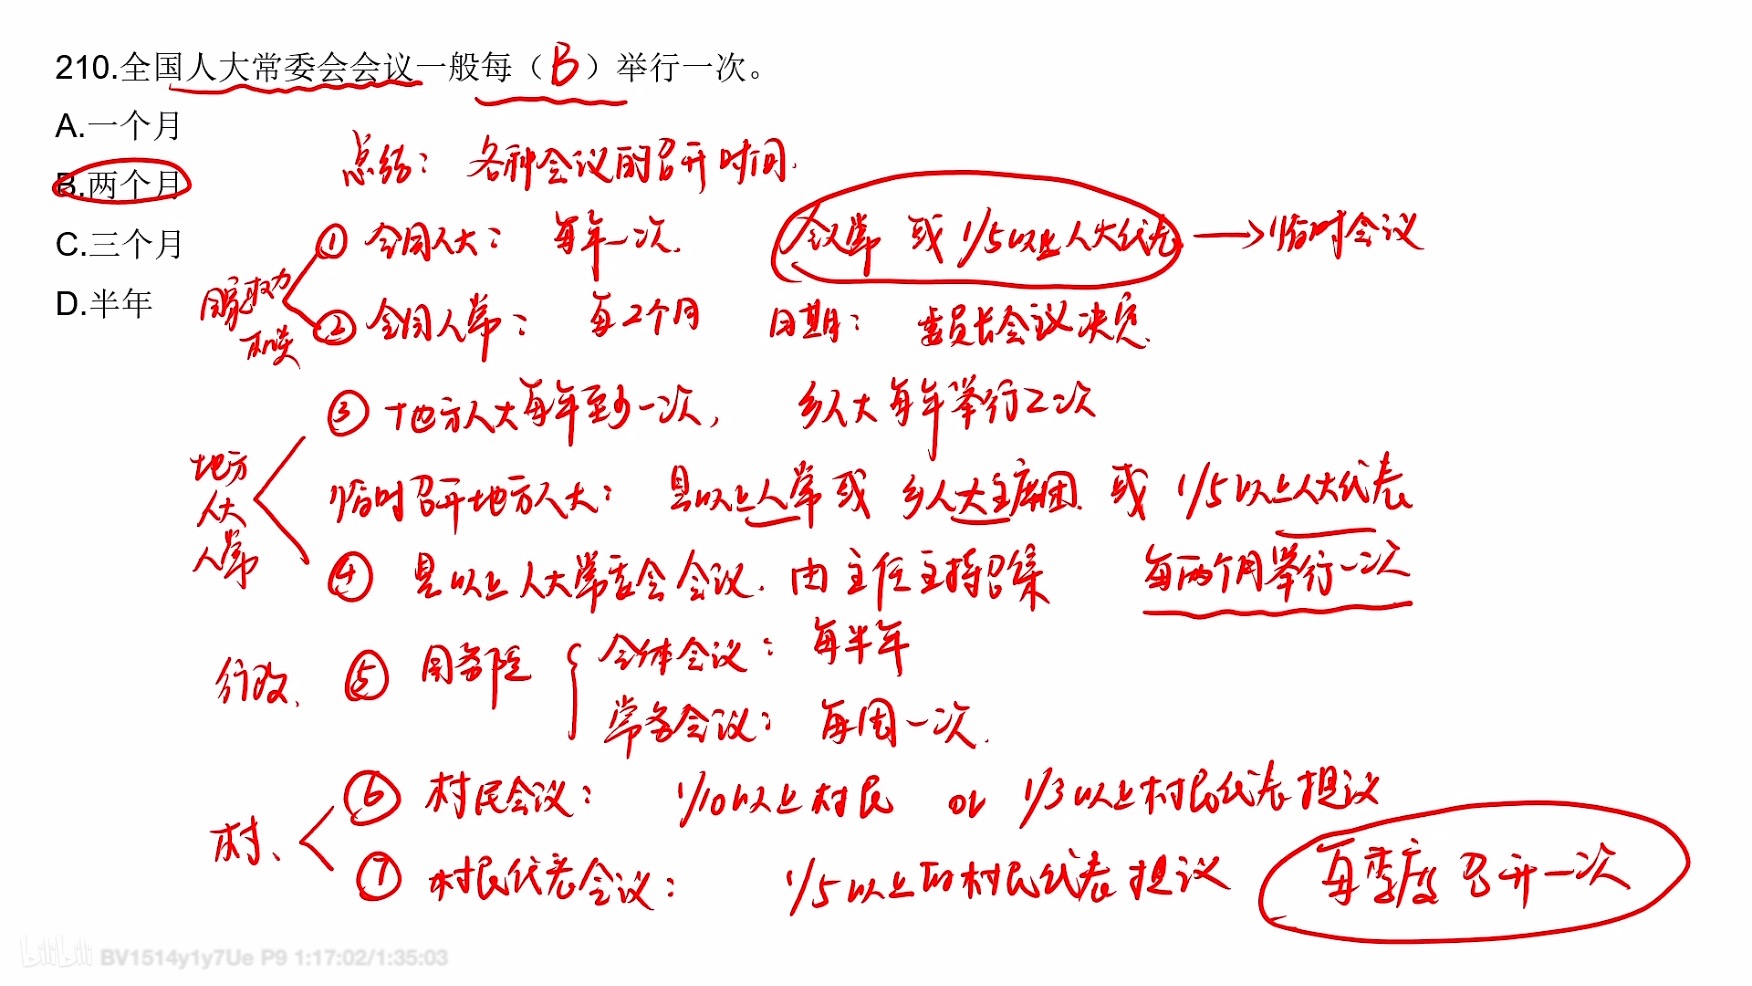 210.全国人大常委会会议一般每（B）举行一次。
A.一个月
B.两个月
C.三个月
D.半年
总结：各种会议的召开时间.
国家权力机关
① 全国人大：每年一次. 人常 或 1/5以上人大代表 → 临时会议
② 全国人常：每2个月 日期：委员长会议决定.
地方人大人常
③ 地方人大每年至少一次, 乡人大每年举行2次
临时召开地方人大：县以上人常或 乡人大主席团. 或 1/5以上人大代表
④ 县以上人大常委会会议. 由主任主持召集 每两个月举行一次
行政.
⑤ 国务院 { 全体会议：每半年
常务会议：每周一次.
村、
⑥ 村民会议：1/10以上村民 or 1/3以上村民代表提议
⑦ 村民代表会议：1/5以上的村民代表提议 每季度召开一次
bilibili BV1514y1y7Ue P9 1:17:02/1:35:03